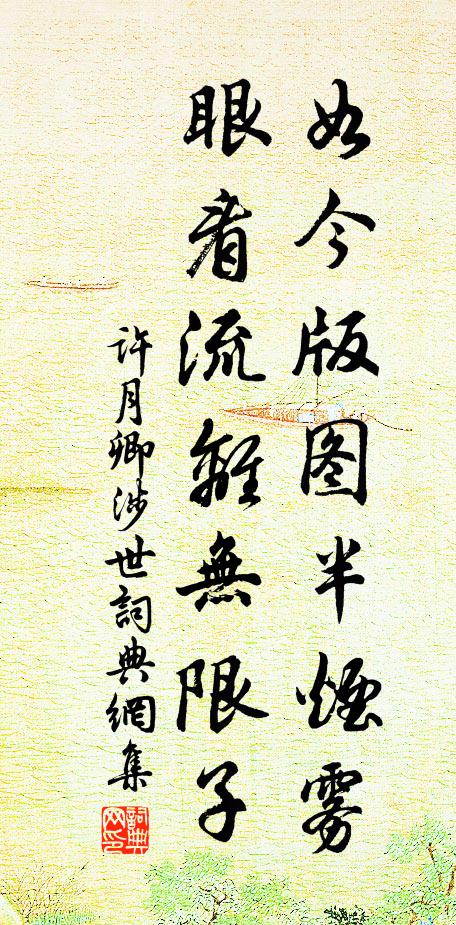 如今版图半煙雾
眼看流離無限子
许月卿涉世詞典網集
詞典網印